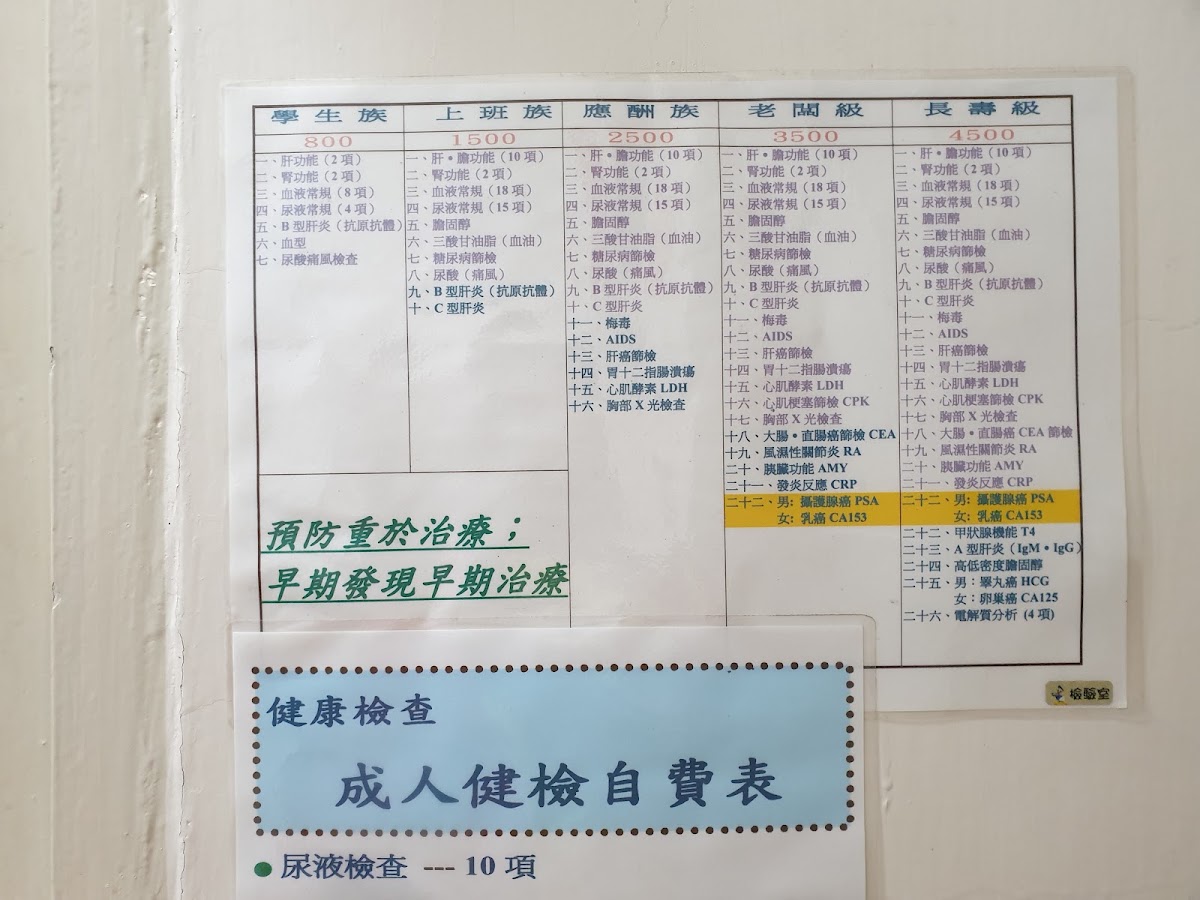 學生族
800
一、肝功能（2 項）
二、腎功能（2 項）
三、血液常規（8 項）
四、尿液常規（4 項）
五、B 型肝炎（抗原抗體）
六、血型
七、尿酸痛風檢查
上班族
1500
一、肝•膽功能（10 項）
二、腎功能（2 項）
三、血液常規（18 項）
四、尿液常規（15 項）
五、膽固醇
六、三酸甘油脂（血油）
七、糖尿病篩檢
八、尿酸（痛風）
九、B 型肝炎（抗原抗體）
十、C 型肝炎
應酬族
2500
一、肝•膽功能（10 項）
二、腎功能（2 項）
三、血液常規（18 項）
四、尿液常規（15 項）
五、膽固醇
六、三酸甘油脂（血油）
七、糖尿病篩檢
八、尿酸（痛風）
九、B 型肝炎（抗原抗體）
十、C 型肝炎
十一、梅毒
十二、AIDS
十三、肝癌篩檢
十四、胃十二指腸潰瘍
十五、心肌酵素 LDH
十六、胸部 X 光檢查
老闆級
3500
一、肝•膽功能（10 項）
二、腎功能（2 項）
三、血液常規（18 項）
四、尿液常規（15 項）
五、膽固醇
六、三酸甘油脂（血油）
七、糖尿病篩檢
八、尿酸（痛風）
九、B 型肝炎（抗原抗體）
十、C 型肝炎
十一、梅毒
十二、AIDS
十三、肝癌篩檢
十四、胃十二指腸潰瘍
十五、心肌酵素 LDH
十六、心肌梗塞篩檢 CPK
十七、胸部 X 光檢查
十八、大腸•直腸癌篩檢 CEA
十九、風濕性關節炎 RA
二十、胰臟功能 AMY
二十一、發炎反應 CRP
二十二、男: 攝護腺癌 PSA
女: 乳癌 CA153
長壽級
4500
一、肝•膽功能（10 項）
二、腎功能（2 項）
三、血液常規（18 項）
四、尿液常規（15 項）
五、膽固醇
六、三酸甘油脂（血油）
七、糖尿病篩檢
八、尿酸（痛風）
九、B 型肝炎（抗原抗體）
十、C 型肝炎
十一、梅毒
十二、AIDS
十三、肝癌篩檢
十四、胃十二指腸潰瘍
十五、心肌酵素 LDH
十六、心肌梗塞篩檢 CPK
十七、胸部 X 光檢查
十八、大腸•直腸癌 CEA 篩檢
十九、風濕性關節炎 RA
二十、胰臟功能 AMY
二十一、發炎反應 CRP
二十二、男: 攝護腺癌 PSA
女: 乳癌 CA153
二十二、甲狀腺機能 T4
二十三、A 型肝炎（IgM•IgG）
二十四、高低密度膽固醇
二十五、男：睪丸癌 HCG
女：卵巢癌 CA125
二十六、電解質分析 (4 項)
預防重於治療；
早期發現早期治療
檢驗室
健康檢查
成人健檢自費表
● 尿液檢查 --- 10 項